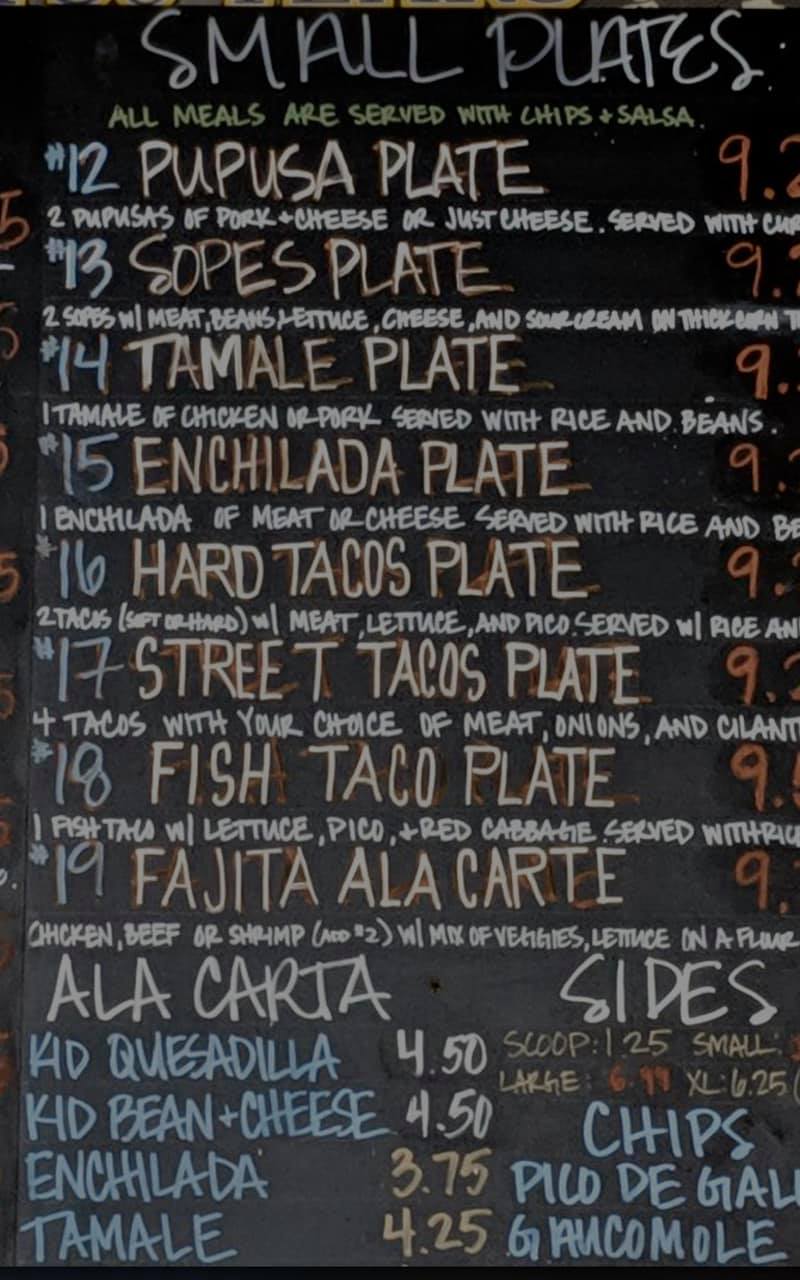 SMALL PLATES
ALL MEALS ARE SERVED WITH CHIPS + SALSA.
#12 PUPUSA PLATE 9.2
2 PUPUSAS OF PORK + CHEESE OR JUST CHEESE. SERVED WITH CUR
#13 SOPES PLATE 9.
2 SOPES W/ MEAT, BEANS, LETTUCE, CHEESE, AND SOUR CREAM ON THICK CORN T
#14 TAMALE PLATE 9.
1 TAMALE OF CHICKEN OR PORK SERVED WITH RICE AND BEANS.
#15 ENCHILADA PLATE 9.
1 ENCHILADA OF MEAT OR CHEESE SERVED WITH RICE AND BE
#16 HARD TACOS PLATE 9.
2 TACOS (SOFT OR HARD) W/ MEAT, LETTUCE, AND PICO. SERVED W/ RICE AN
#17 STREET TACOS PLATE 9.
4 TACOS WITH YOUR CHOICE OF MEAT, ONIONS, AND CILANT
#18 FISH TACO PLATE 9.
1 FISH TACO W/ LETTUCE, PICO, + RED CABBAGE. SERVED WITH RIC
#19 FAJITA ALA CARTE 9.
CHICKEN, BEEF OR SHRIMP (ADD $2) W/ MIX OF VEGGIES, LETTUCE ON A FLOUR
ALA CARTA
KID QUESADILLA 4.50
KID BEAN + CHEESE 4.50
ENCHILADA 3.75
TAMALE 4.25
SIDES
SCOOP: 1.25 SMALL:
LARGE: 6.99 XL: 6.25 (
CHIPS
PICO DE GALL
GAUCOMOLE